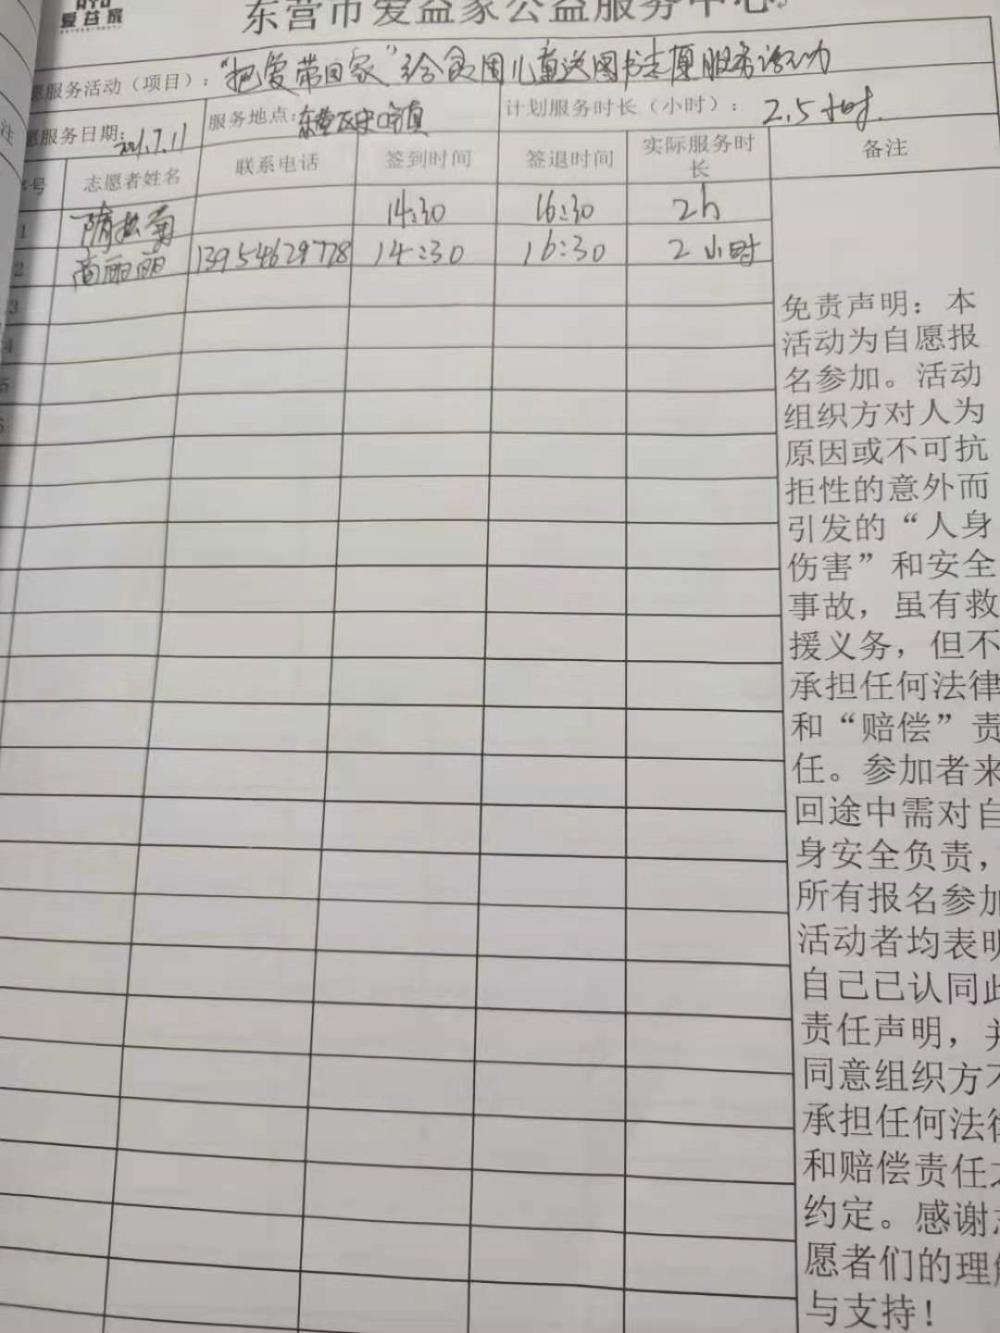 爱益家
东营市爱益家公益服务中心
愿服务活动（项目）：“把爱带回家”给贫困儿童送图书志愿服务活动
愿服务日期：21.7.11 服务地点：东营区史口镇 计划服务时长（小时）：2.5小时.
号 志愿者姓名 联系电话 签到时间 签退时间 实际服务时长 备注
1 隋松菊 14:30 16:30 2h
2 高丽丽 13954629778 14:30 16:30 2小时
3
4
5
6
注
免责声明：本
活动为自愿报
名参加。活动
组织方对人为
原因或不可抗
拒性的意外而
引发的“人身
伤害”和安全
事故，虽有救
援义务，但不
承担任何法律
和“赔偿”责
任。参加者来
回途中需对自
身安全负责，
所有报名参加
活动者均表明
自己已认同此
责任声明，并
同意组织方不
承担任何法律
和赔偿责任之
约定。感谢志
愿者们的理解
与支持！